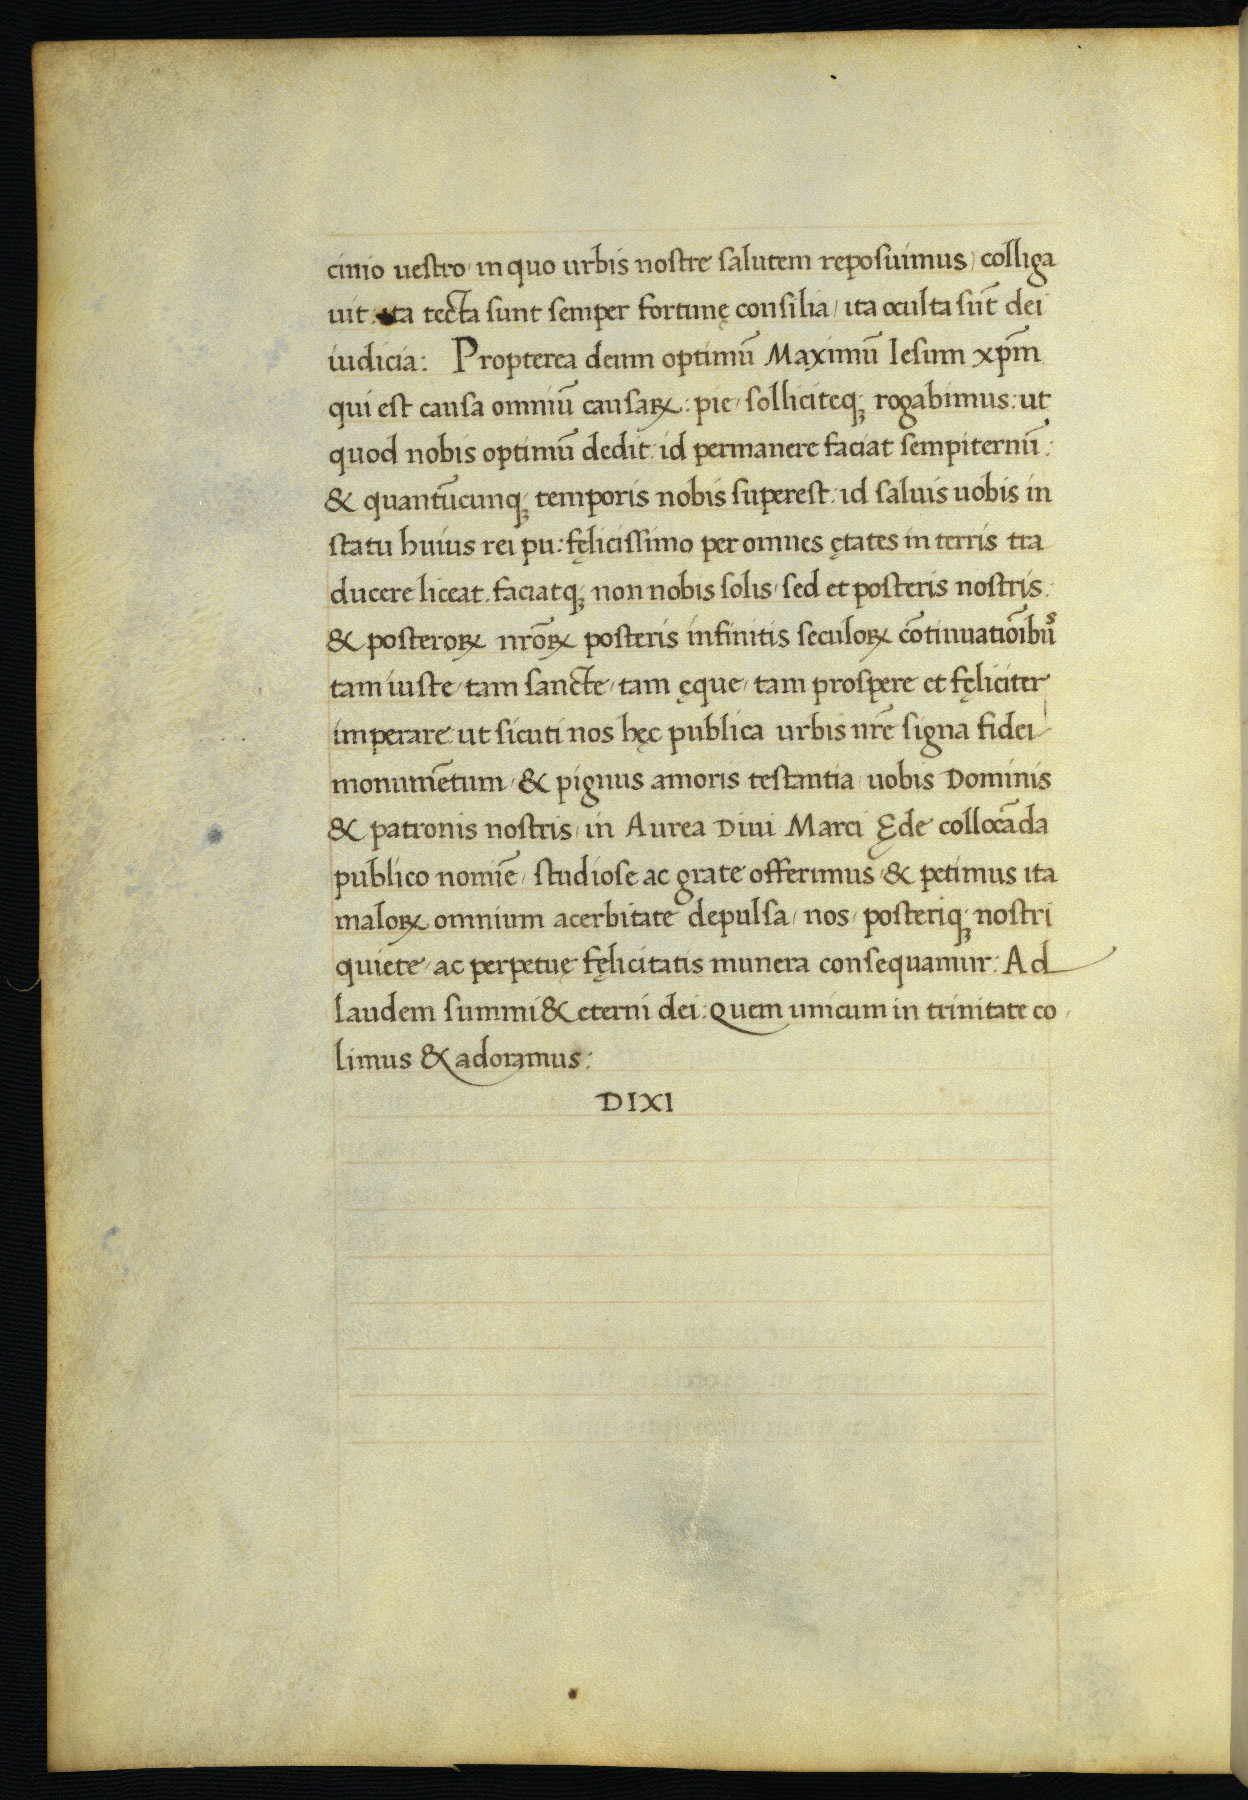 cinio uestro in quo urbis nostre salutem reposuimus / colliga
uit. ita tecta sunt semper fortunę consilia / ita oculta sūt dei
iudicia: Propterea deum optimū Maximū Iesum xp̄m
qui est causa omniū causaꝝ: pie / solliciteqꝫ rogabimus: ut
quod nobis optimū dedit: id permanere faciat sempiternū:
& quantūcunqꝫ temporis nobis superest: id saluis uobis in
statu huius rei pu: fęlicissimo per omnes ętates in terris tra
ducere liceat. faciatqꝫ non nobis solis / sed et posteris nostris:
& posteroꝝ nr̄oꝝ posteris infinitis seculoꝝ cōtinuatiōibus
tam iuste / tam sancte / tam ęque / tam prospere et fęliciter
imperare: ut sicuti nos hęc publica urbis nr̄e signa fidei
monumētum / & pignus amoris testantia / uobis Dominis
& patronis nostris / in Aurea Diui Marci Ęde collocāda
publico nomīe / studiose ac grate offerimus / & petimus ita
maloꝝ omnium acerbitate depulsa / nos / posteriqꝫ nostri
quiete / ac perpetuę fęlicitatis munera consequamur: Ad
laudem summi & eterni dei: Quem unicum in trinitate co /
limus & adoramus:
DIXI